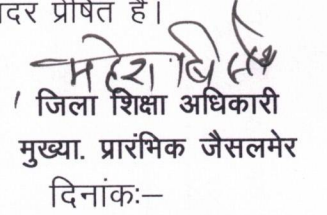 ादर प्रेषित है।
महेश बि
जिला शिक्षा अधिकारी
मुख्या. प्रारंभिक जैसलमेर
दिनांकः–